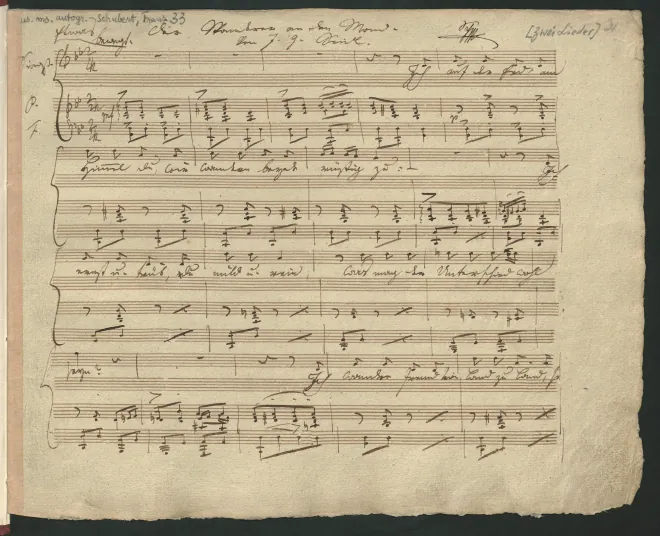 us. ms. autogr. Schubert, Franz 33
[Zwei Lieder]
Etwas bewegt.
Der Wanderer an den Mond.
Von J. G. Seidl.
Singst.
Ich auf der Erd, am
P.
F.
Himmel du, wir wandern beyde rüstig zu: –
Ich
ernst u. trüb, du mild u. rein, was mag der Unterschied wohl
seyn?
Ich wandre fremd von Land zu Land, so